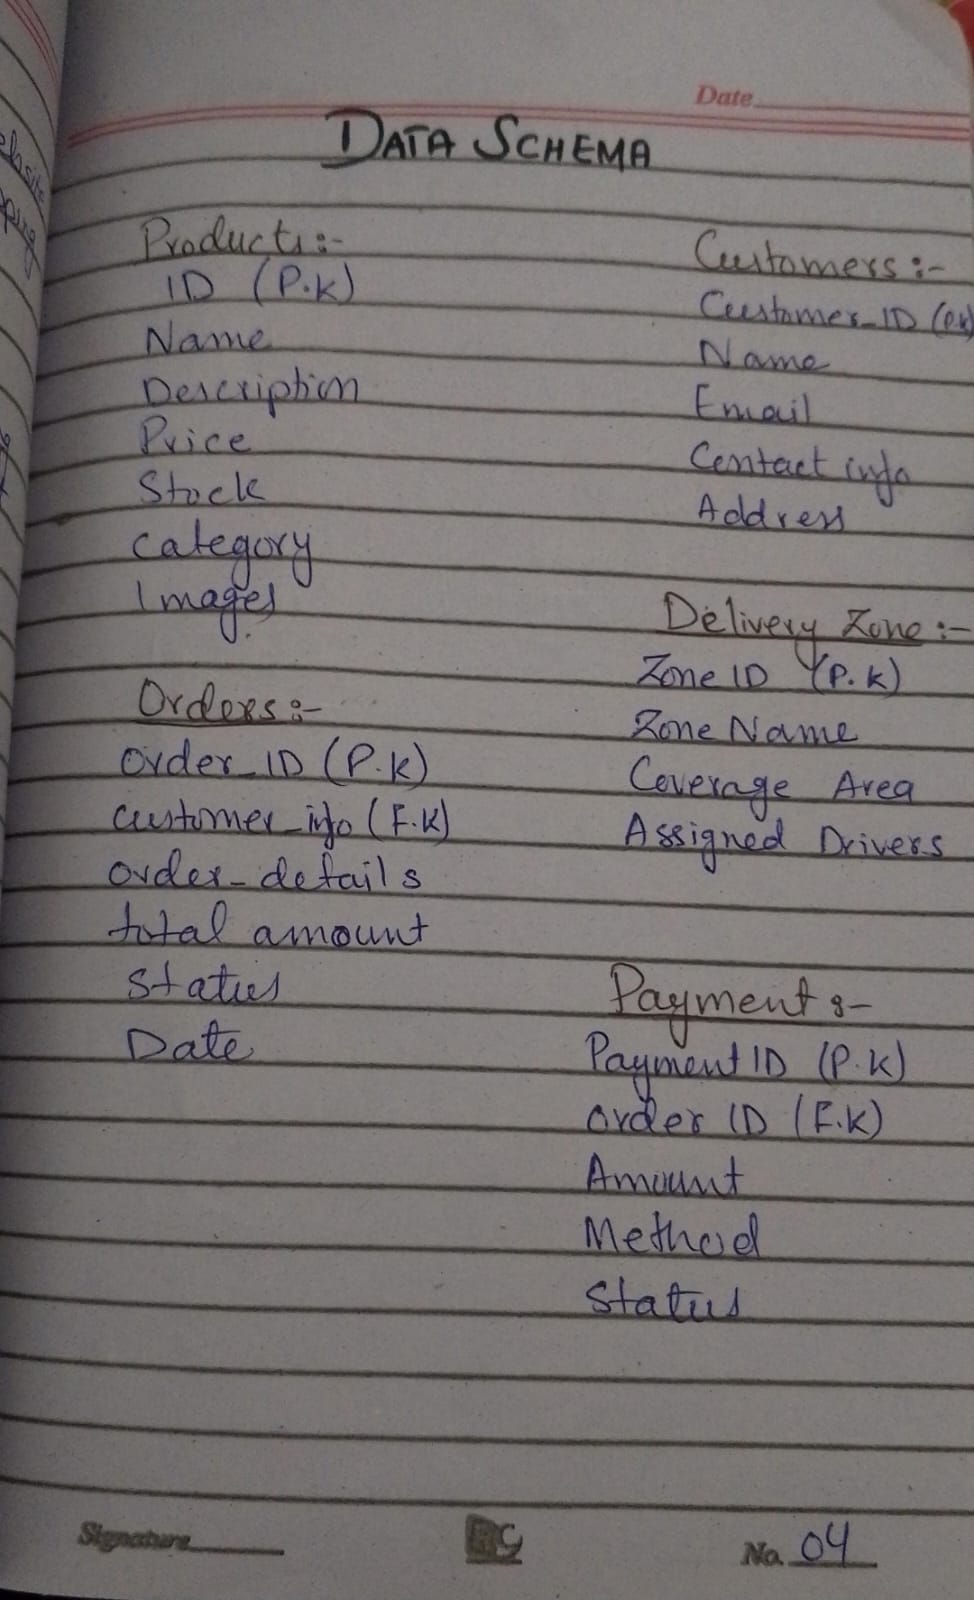 Date
DATA SCHEMA
Products:-
ID (P.K)
Name
Description
Price
Stock
Category
Images
Orders:-
Order_ID (P.K)
Customer_info (F.K)
Order_details
total amount
Status
Date
Customers:-
Customer_ID (P.K)
Name
Email
Contact info
Address
Delivery Zone:-
Zone ID (P.K)
Zone Name
Coverage Area
Assigned Drivers
Payment:-
Payment ID (P.K)
Order ID (F.K)
Amount
Method
Status
Signature
No. 04